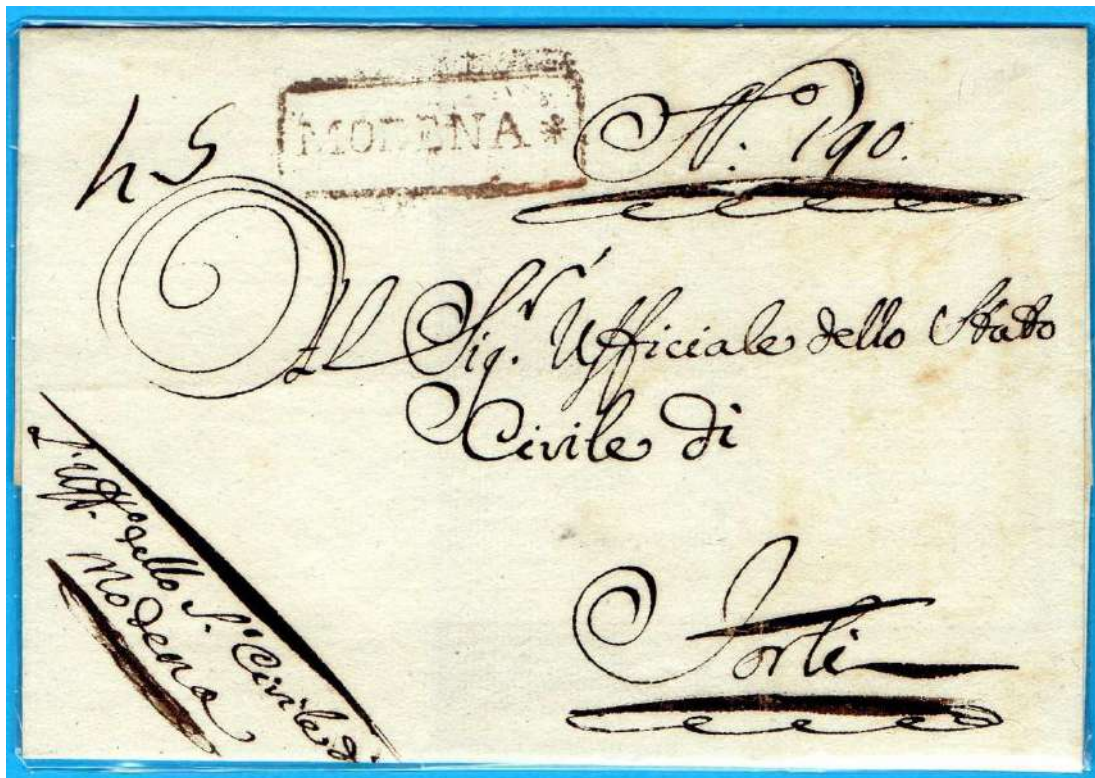 MODENA *
N: 190.
Al Sig.r Ufficiale dello Stato
Civile di
Forlì
L'Uff.o dello S.to Civile di
Modena